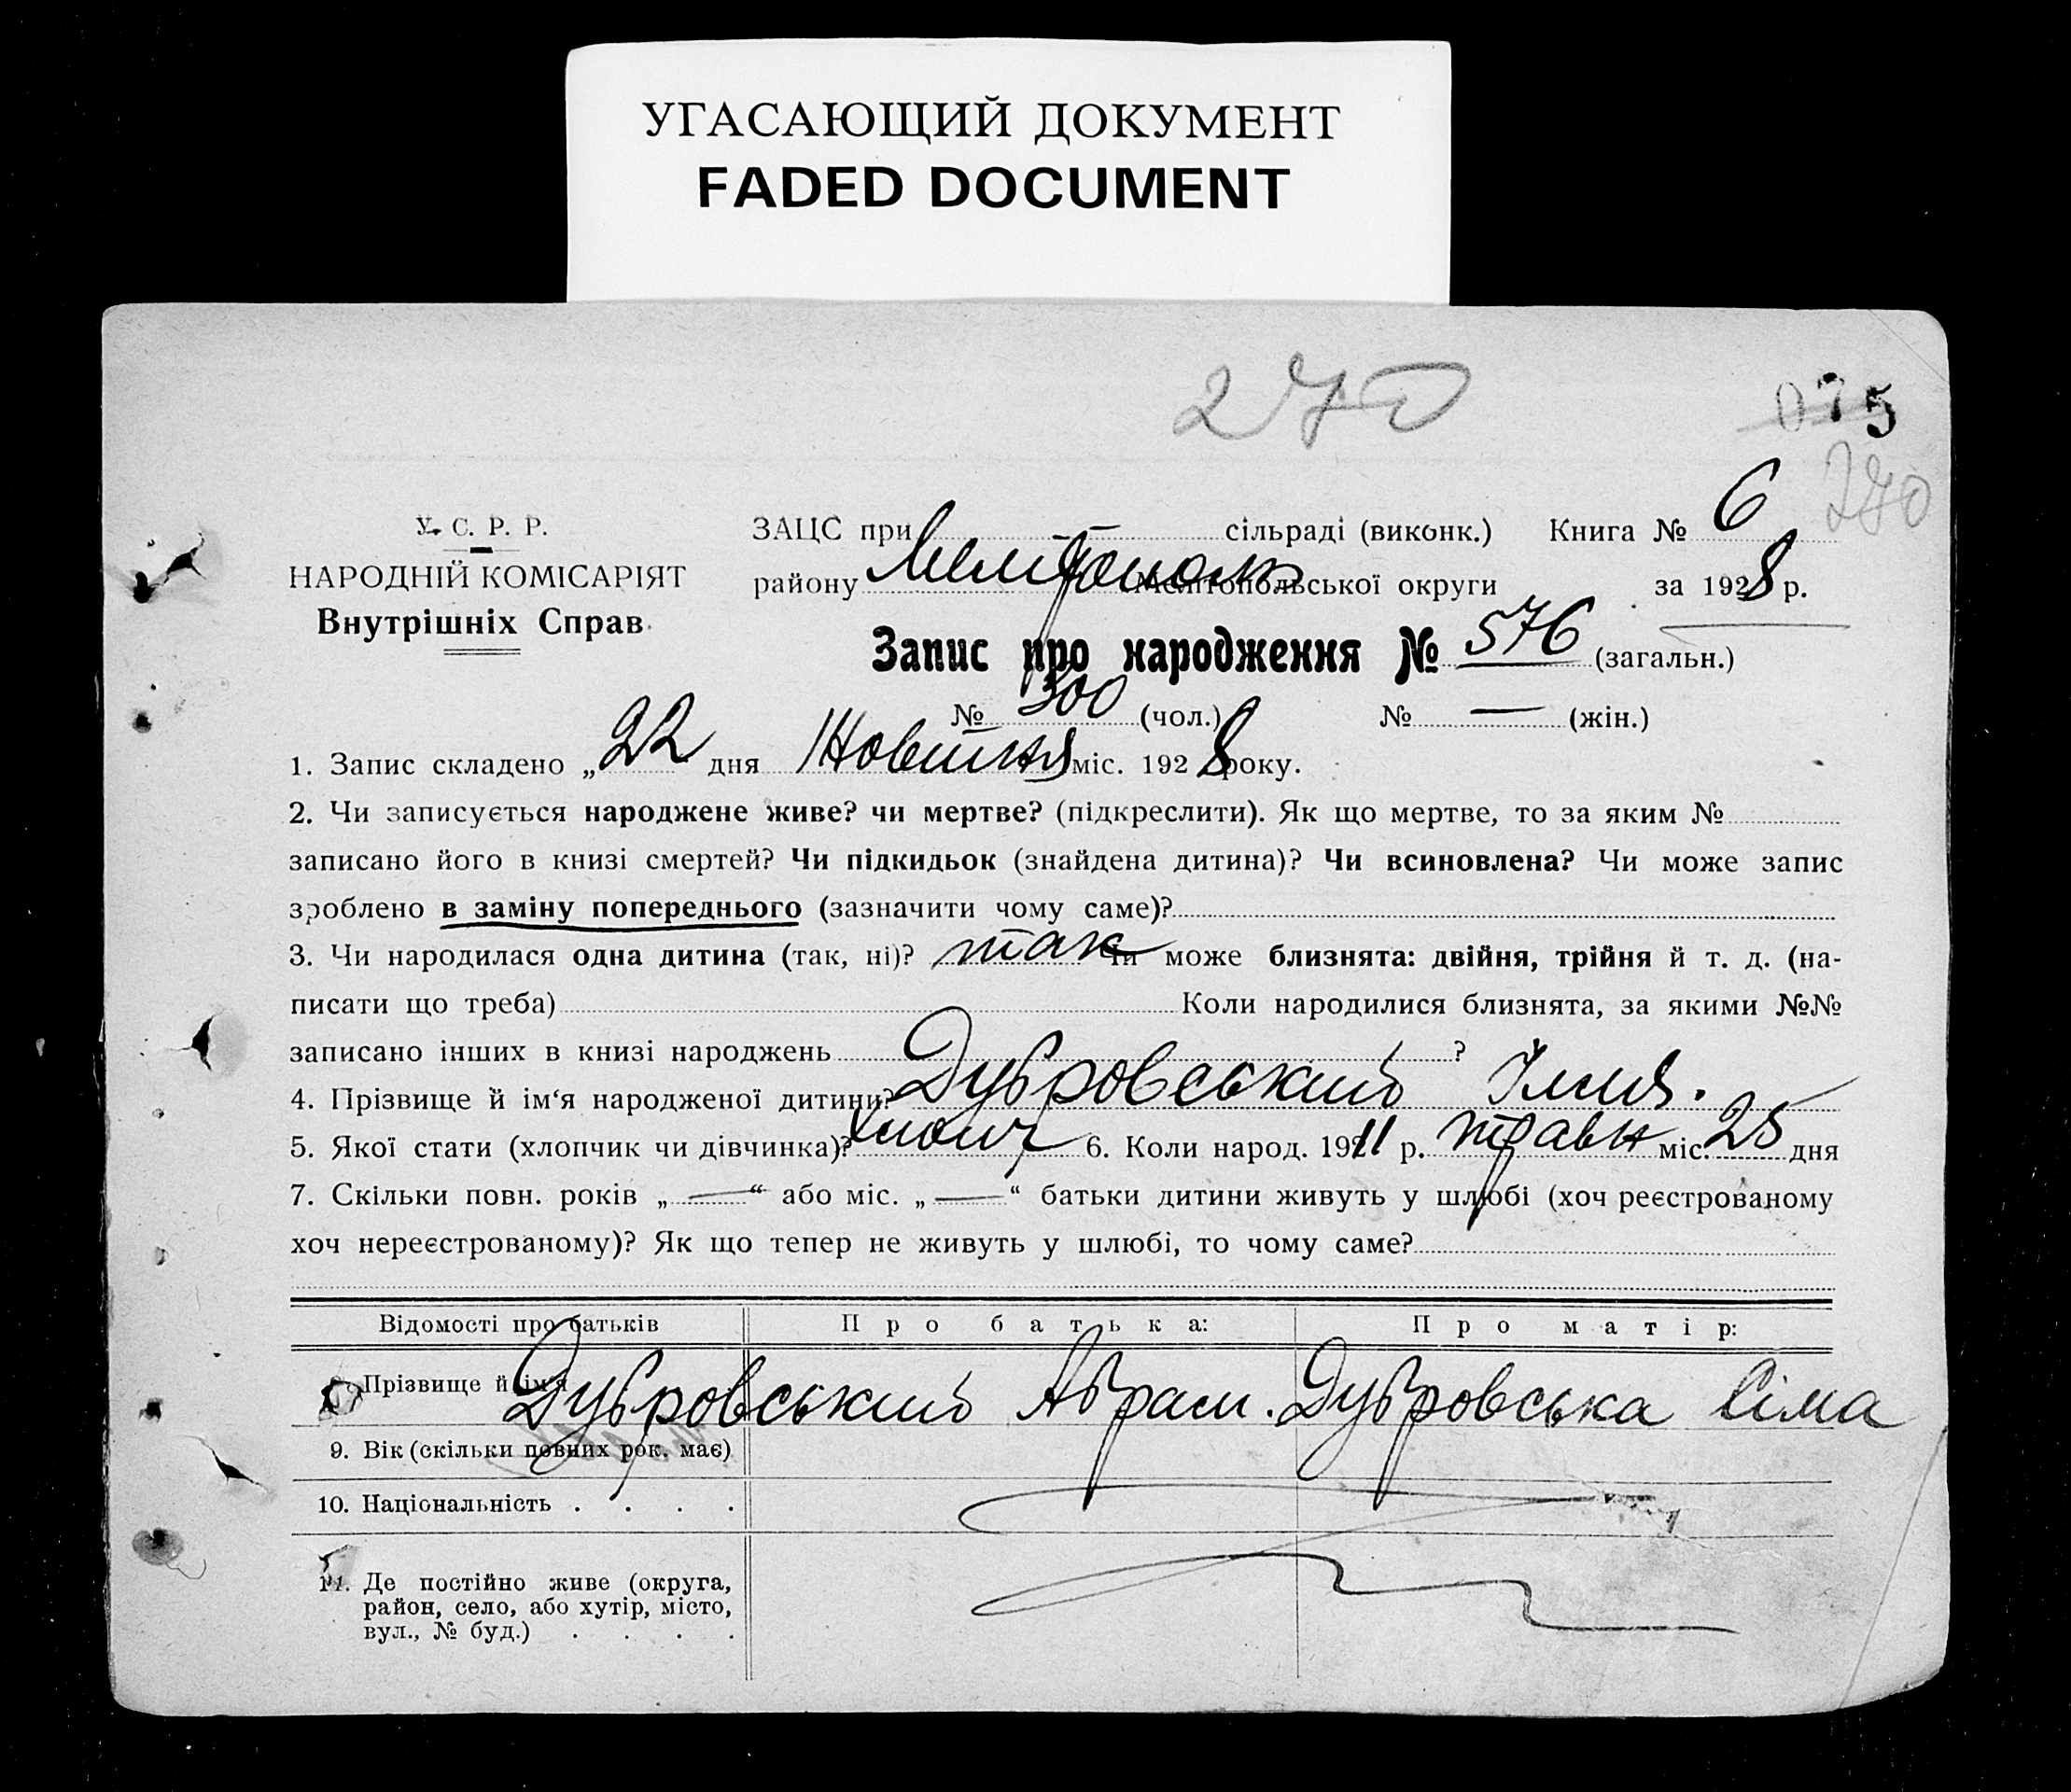 УГАСАЮЩИЙ ДОКУМЕНТ
FADED DOCUMENT
270
075
270
У. С. Р. Р.
НАРОДНІЙ КОМІСАРІЯТ
Внутрішніх Справ
ЗАЦС при сільраді (виконк.) Книга № 6
району Мелітополь Мелітопольської округи за 1928 р.
Запис про народження № 576 (загальн.)
№ 300 (чол.) № — (жін.)
1. Запис складено „22 дня Жовтня міс. 1928 року.
2. Чи записується народжене живе? чи мертве? (підкреслити). Як що мертве, то за яким №
записано його в книзі смертей? Чи підкидьок (знайдена дитина)? Чи всиновлена? Чи може запис
зроблено в заміну попереднього (зазначити чому саме)?
3. Чи народилася одна дитина (так, ні)? так Чи може близнята: двійня, трійня й т. д. (на-
писати що треба) Коли народилися близнята, за якими №№
записано інших в книзі народжень ?
4. Прізвище й ім‘я народженої дитини? Дубровський Ілля.
5. Якої стати (хлопчик чи дівчинка)? хлопч 6. Коли народ. 1911 р. травн міс. 25 дня
7. Скільки повн. років „ — “ або міс. „ — “ батьки дитини живуть у шлюбі (хоч реєстрованому
хоч нереєстрованому)? Як що тепер не живуть у шлюбі, то чому саме?
Відомості про батьків Про батька: Про матір:
Прізвище й ім‘я Дубровський Абрам. Дубровська Сіма
9. Вік (скільки повних рок. має)
10. Національність . . . .
11. Де постійно живе (округа,
район, село, або хутір, місто,
вул., № буд.) . . . .